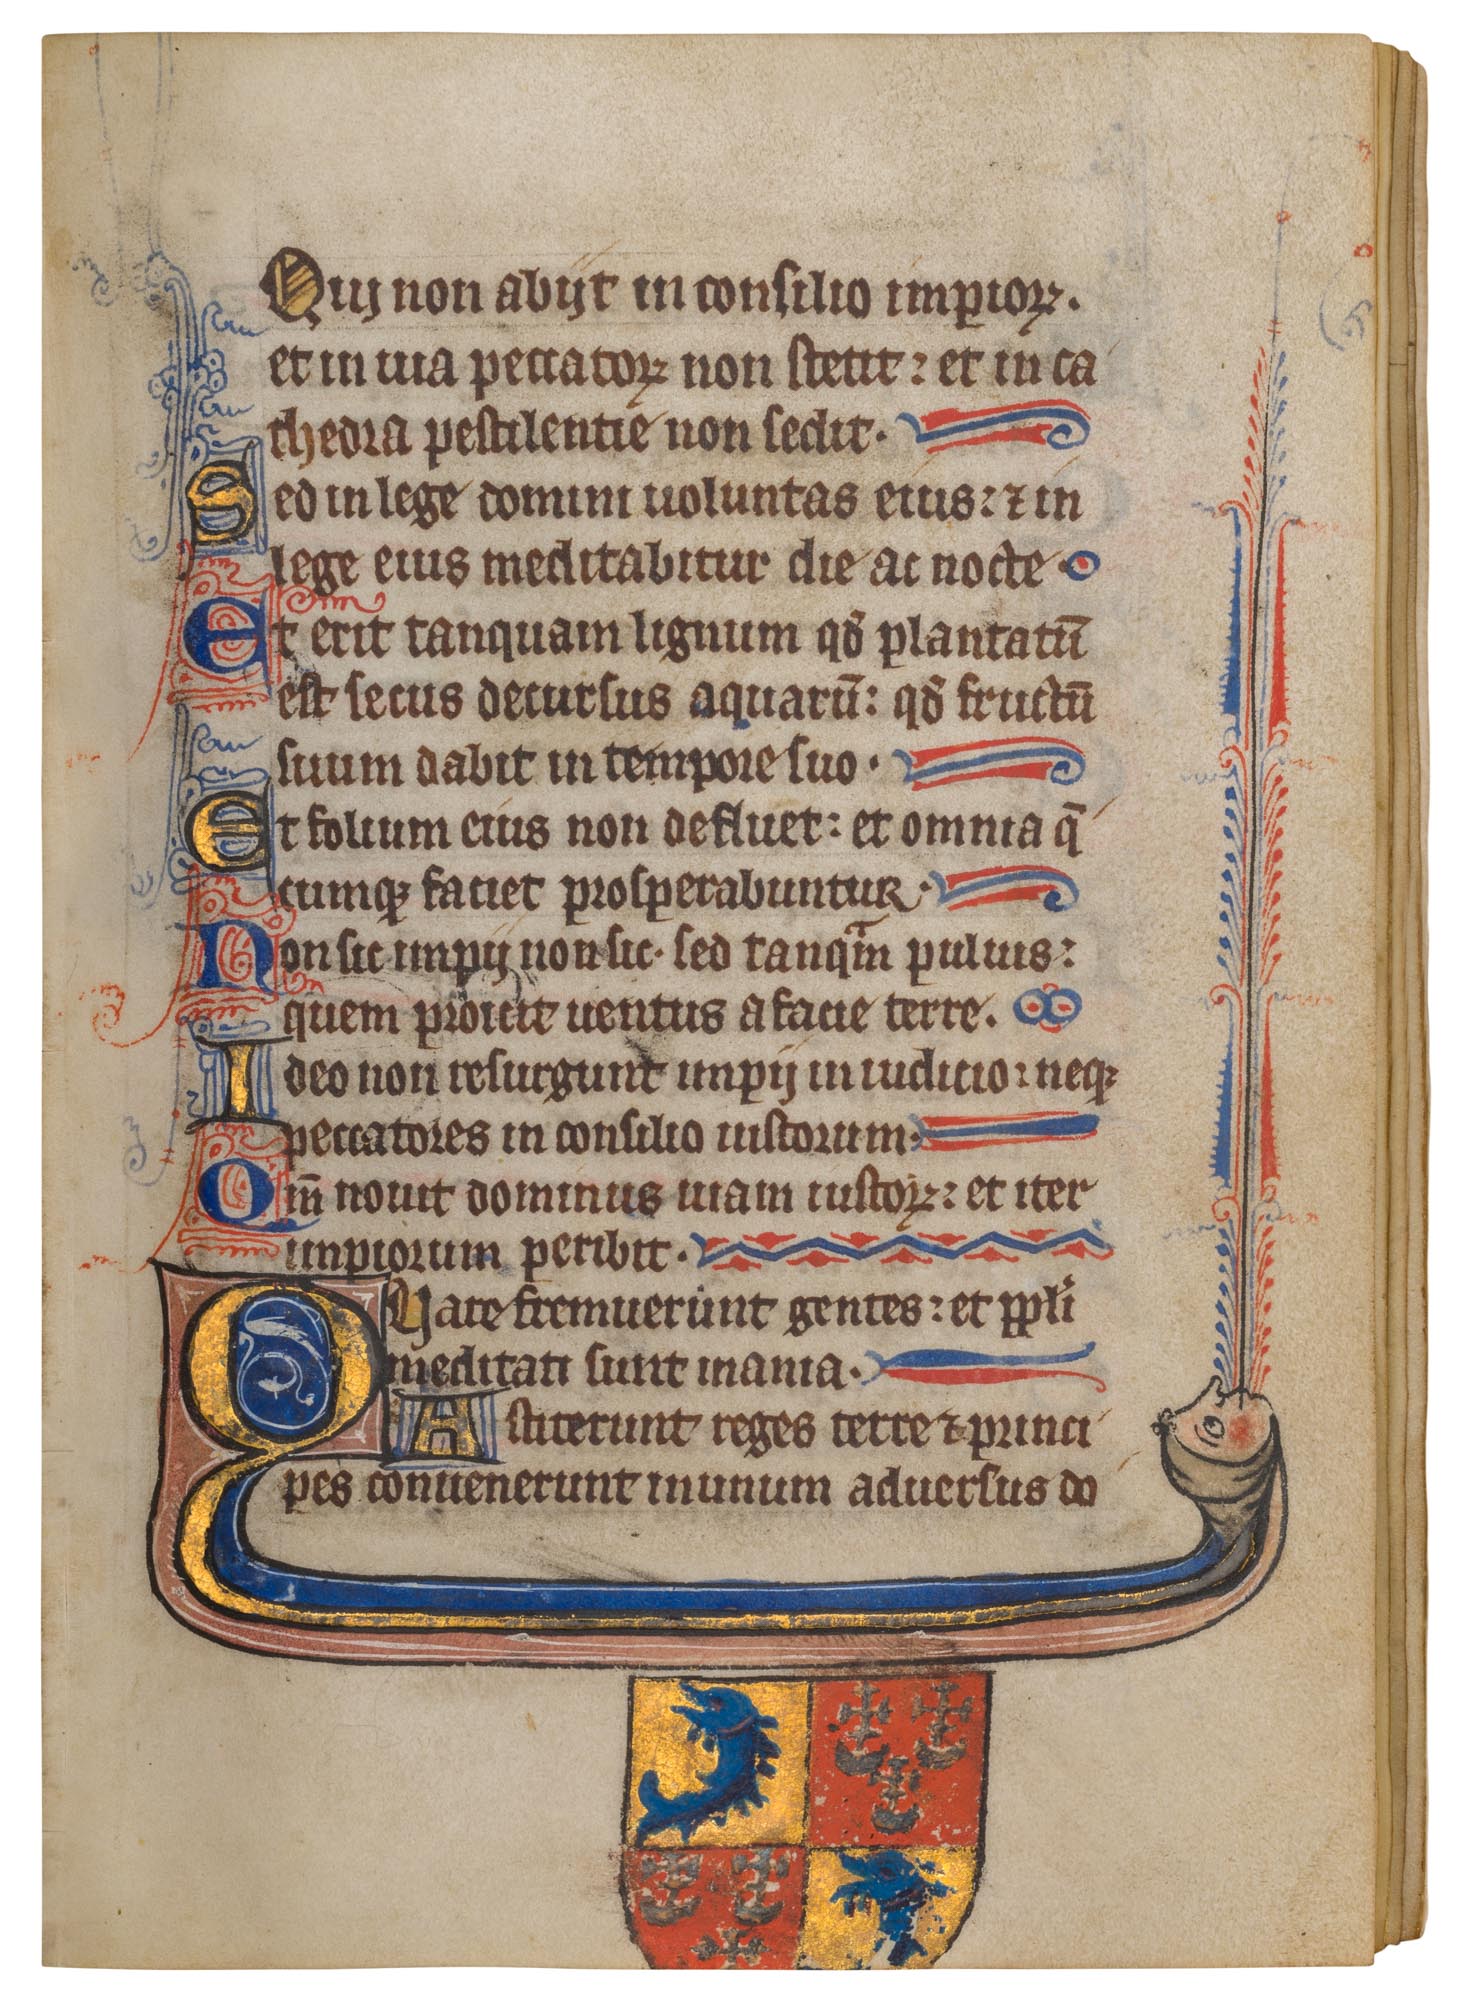 Qui non abijt in consilio impioꝝ.
et in uia peccatoꝝ non stetit: et in ca
thedra pestilentie non sedit.
Sed in lege domini uoluntas eius: ⁊ in
lege eius meditabitur die ac nocte
Et erit tanquam lignum qđ plantatū
est secus decursus aquarū: qđ fructū
suum dabit in tempore suo.
Et folium eius non defluet: et omnia q̄
cumqꝫ faciet prosperabuntur.
Non sic impij non sic. sed tanqᵃm puluis:
quem proicit uentus a facie terre.
Ideo non resurgunt impij in iudicio: neqꝫ
peccatores in consilio iustorum.
Qm̄ nouit dominus uiam iustoꝝ: et iter
impiorum peribit.
Quare fremuerunt gentes: et ppl̓i
meditati sunt inania.
Astiterunt reges terre ⁊ princi
pes conuenerunt in unum aduersus do